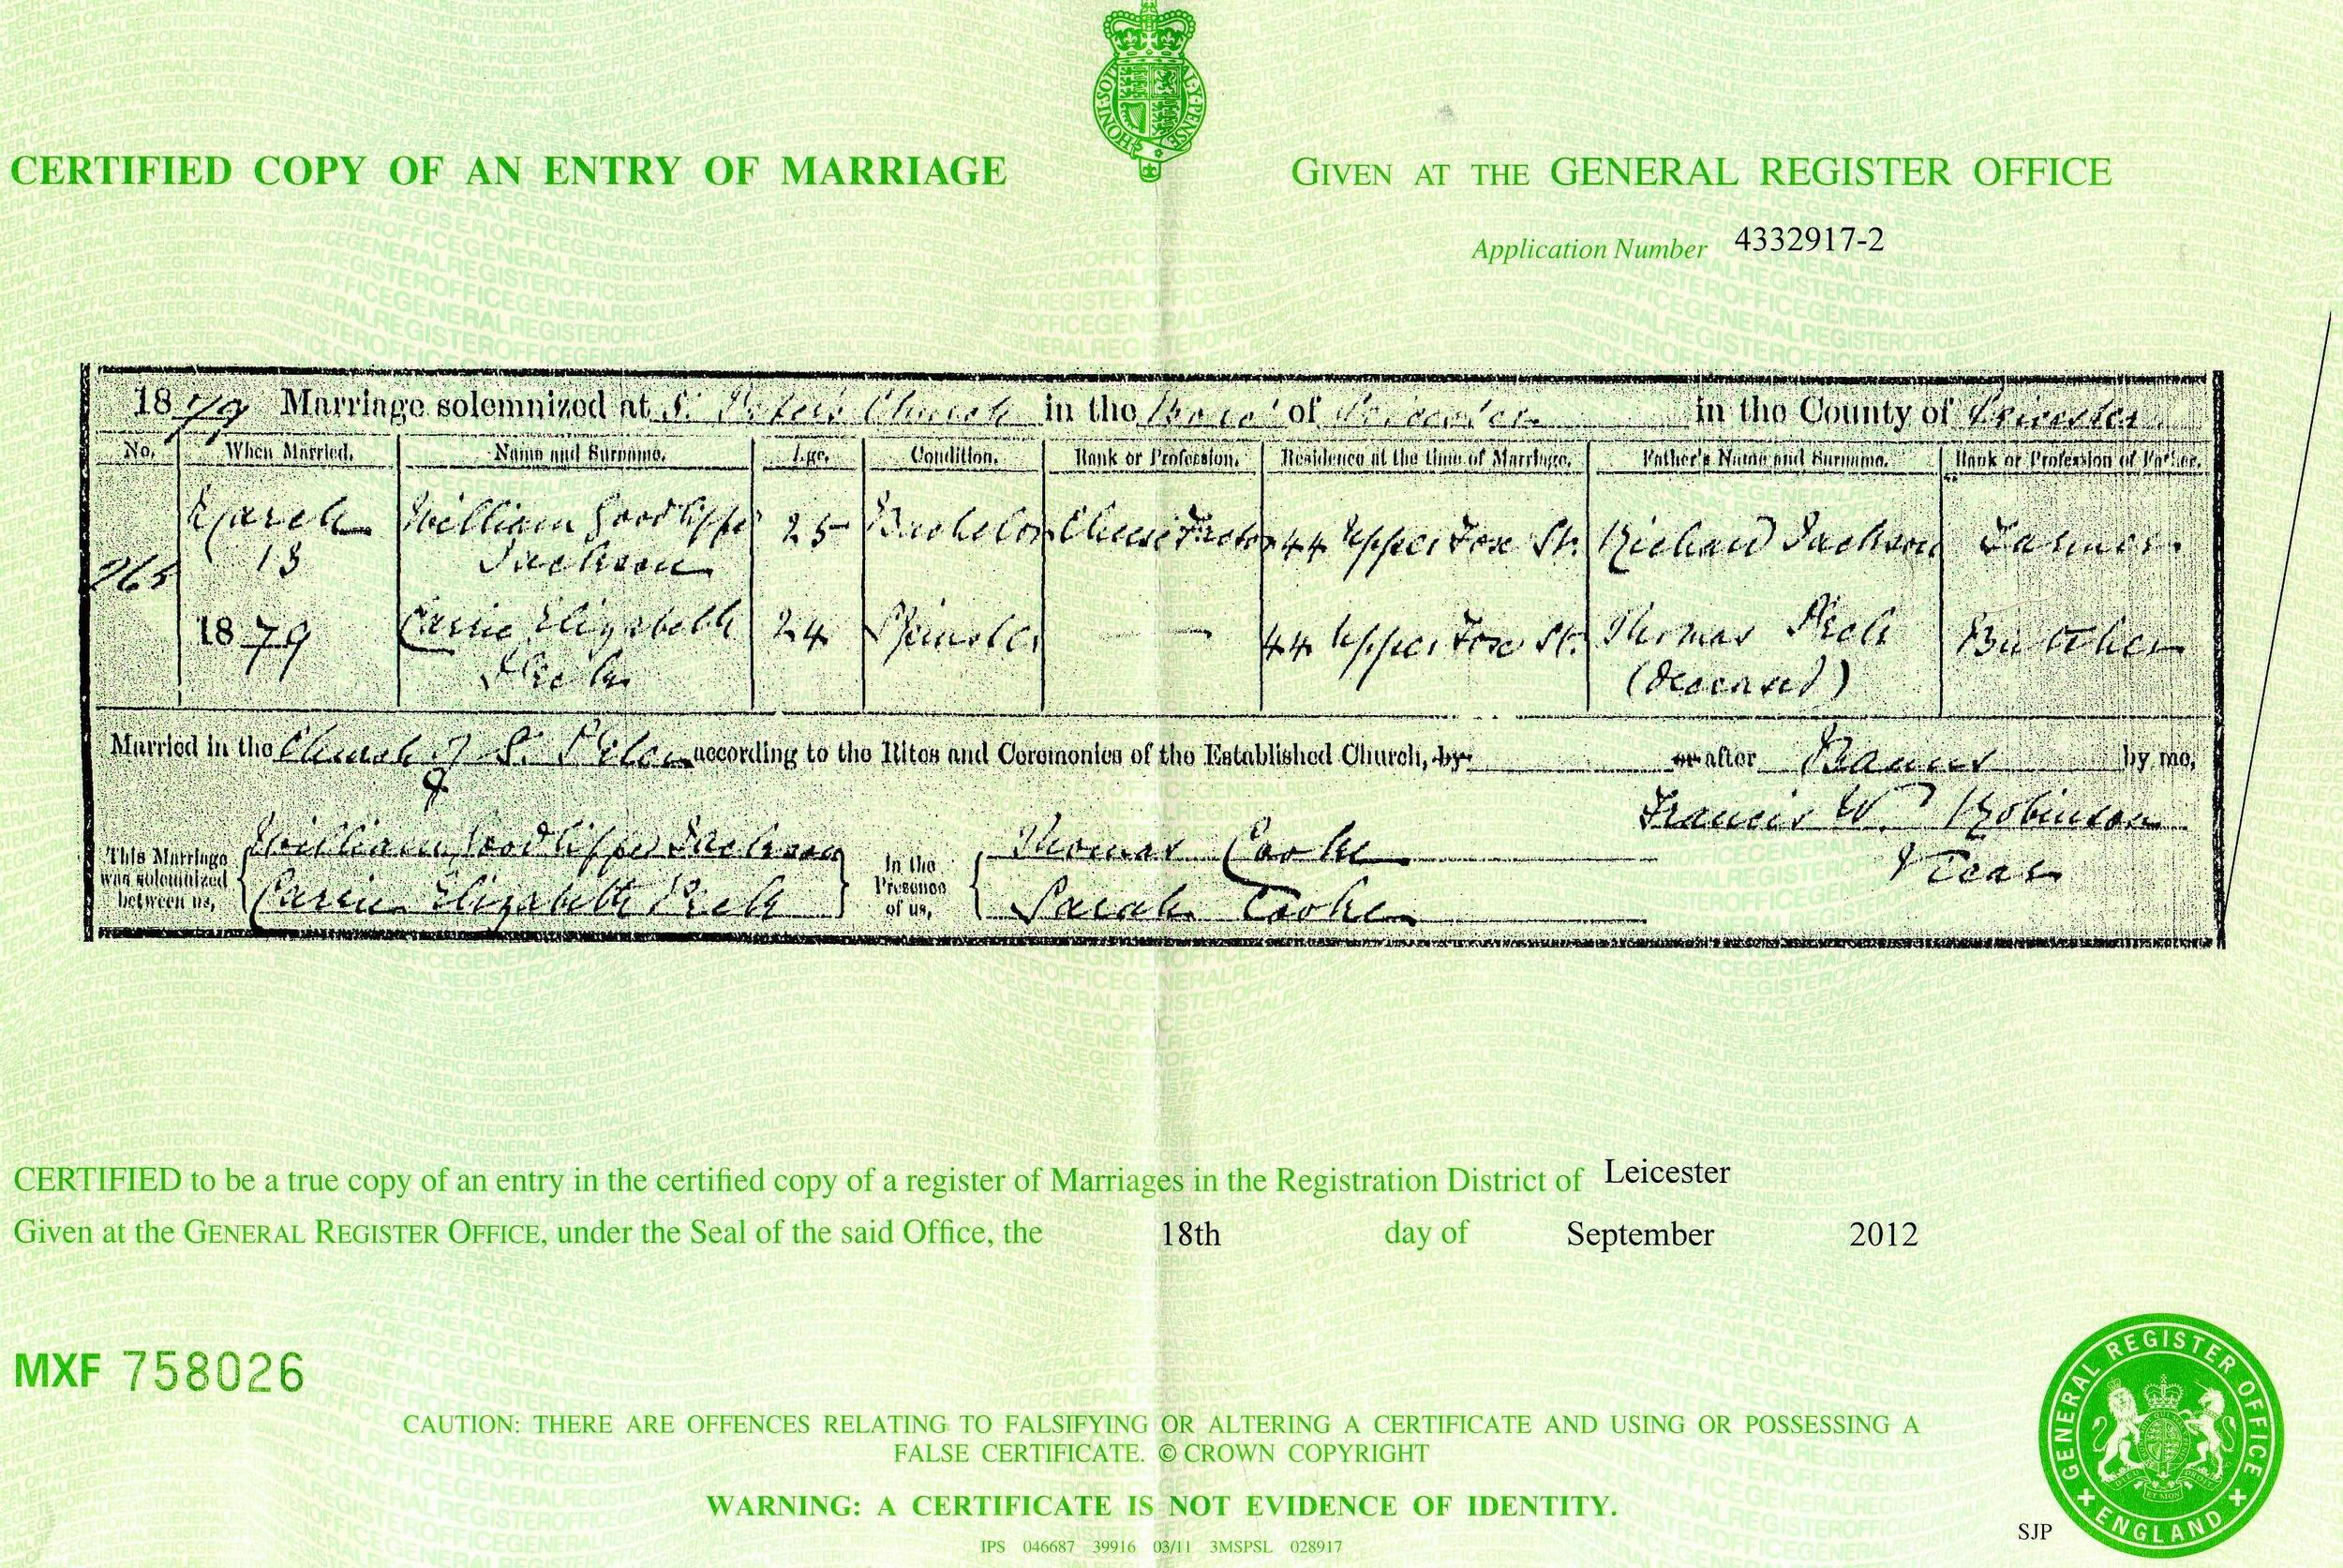 HONI SOIT Y PENSE
CERTIFIED COPY OF AN ENTRY OF MARRIAGE
GIVEN AT THE GENERAL REGISTER OFFICE
Application Number 4332917-2
1879 Marriage solemnized at S. Peter's Church in the of Leicester in the County of Leicester
No. When Married. Name and Surname. Age. Condition. Rank or Profession. Residence at the time of Marriage. Father's Name and Surname. Rank or Profession of Father.
265 March 13 1879 William Goodliffe Jackson 25 Bachelor Cheese Factor 44 Upper Fox St. Richard Jackson Farmer
Carrie Elizabeth 24 Spinster — 44 Upper Fox St. Thomas (deceased) Butcher
Married in the Church of S. Peter according to the Rites and Ceremonies of the Established Church, by or after Banns by me,
Francis W. Robinson
Vicar
This Marriage was solemnized between us, William Goodliffe Jackson In the Presence of us, Thomas Cooke
Carrie Elizabeth Sarah Cooke
CERTIFIED to be a true copy of an entry in the certified copy of a register of Marriages in the Registration District of Leicester
Given at the GENERAL REGISTER OFFICE, under the Seal of the said Office, the 18th day of September 2012
MXF 758026
CAUTION: THERE ARE OFFENCES RELATING TO FALSIFYING OR ALTERING A CERTIFICATE AND USING OR POSSESSING A
FALSE CERTIFICATE. © CROWN COPYRIGHT
WARNING: A CERTIFICATE IS NOT EVIDENCE OF IDENTITY.
IPS 046687 39916 03/11 3MSPSL 028917
SJP
GENERAL REGISTER OFFICE
ENGLAND